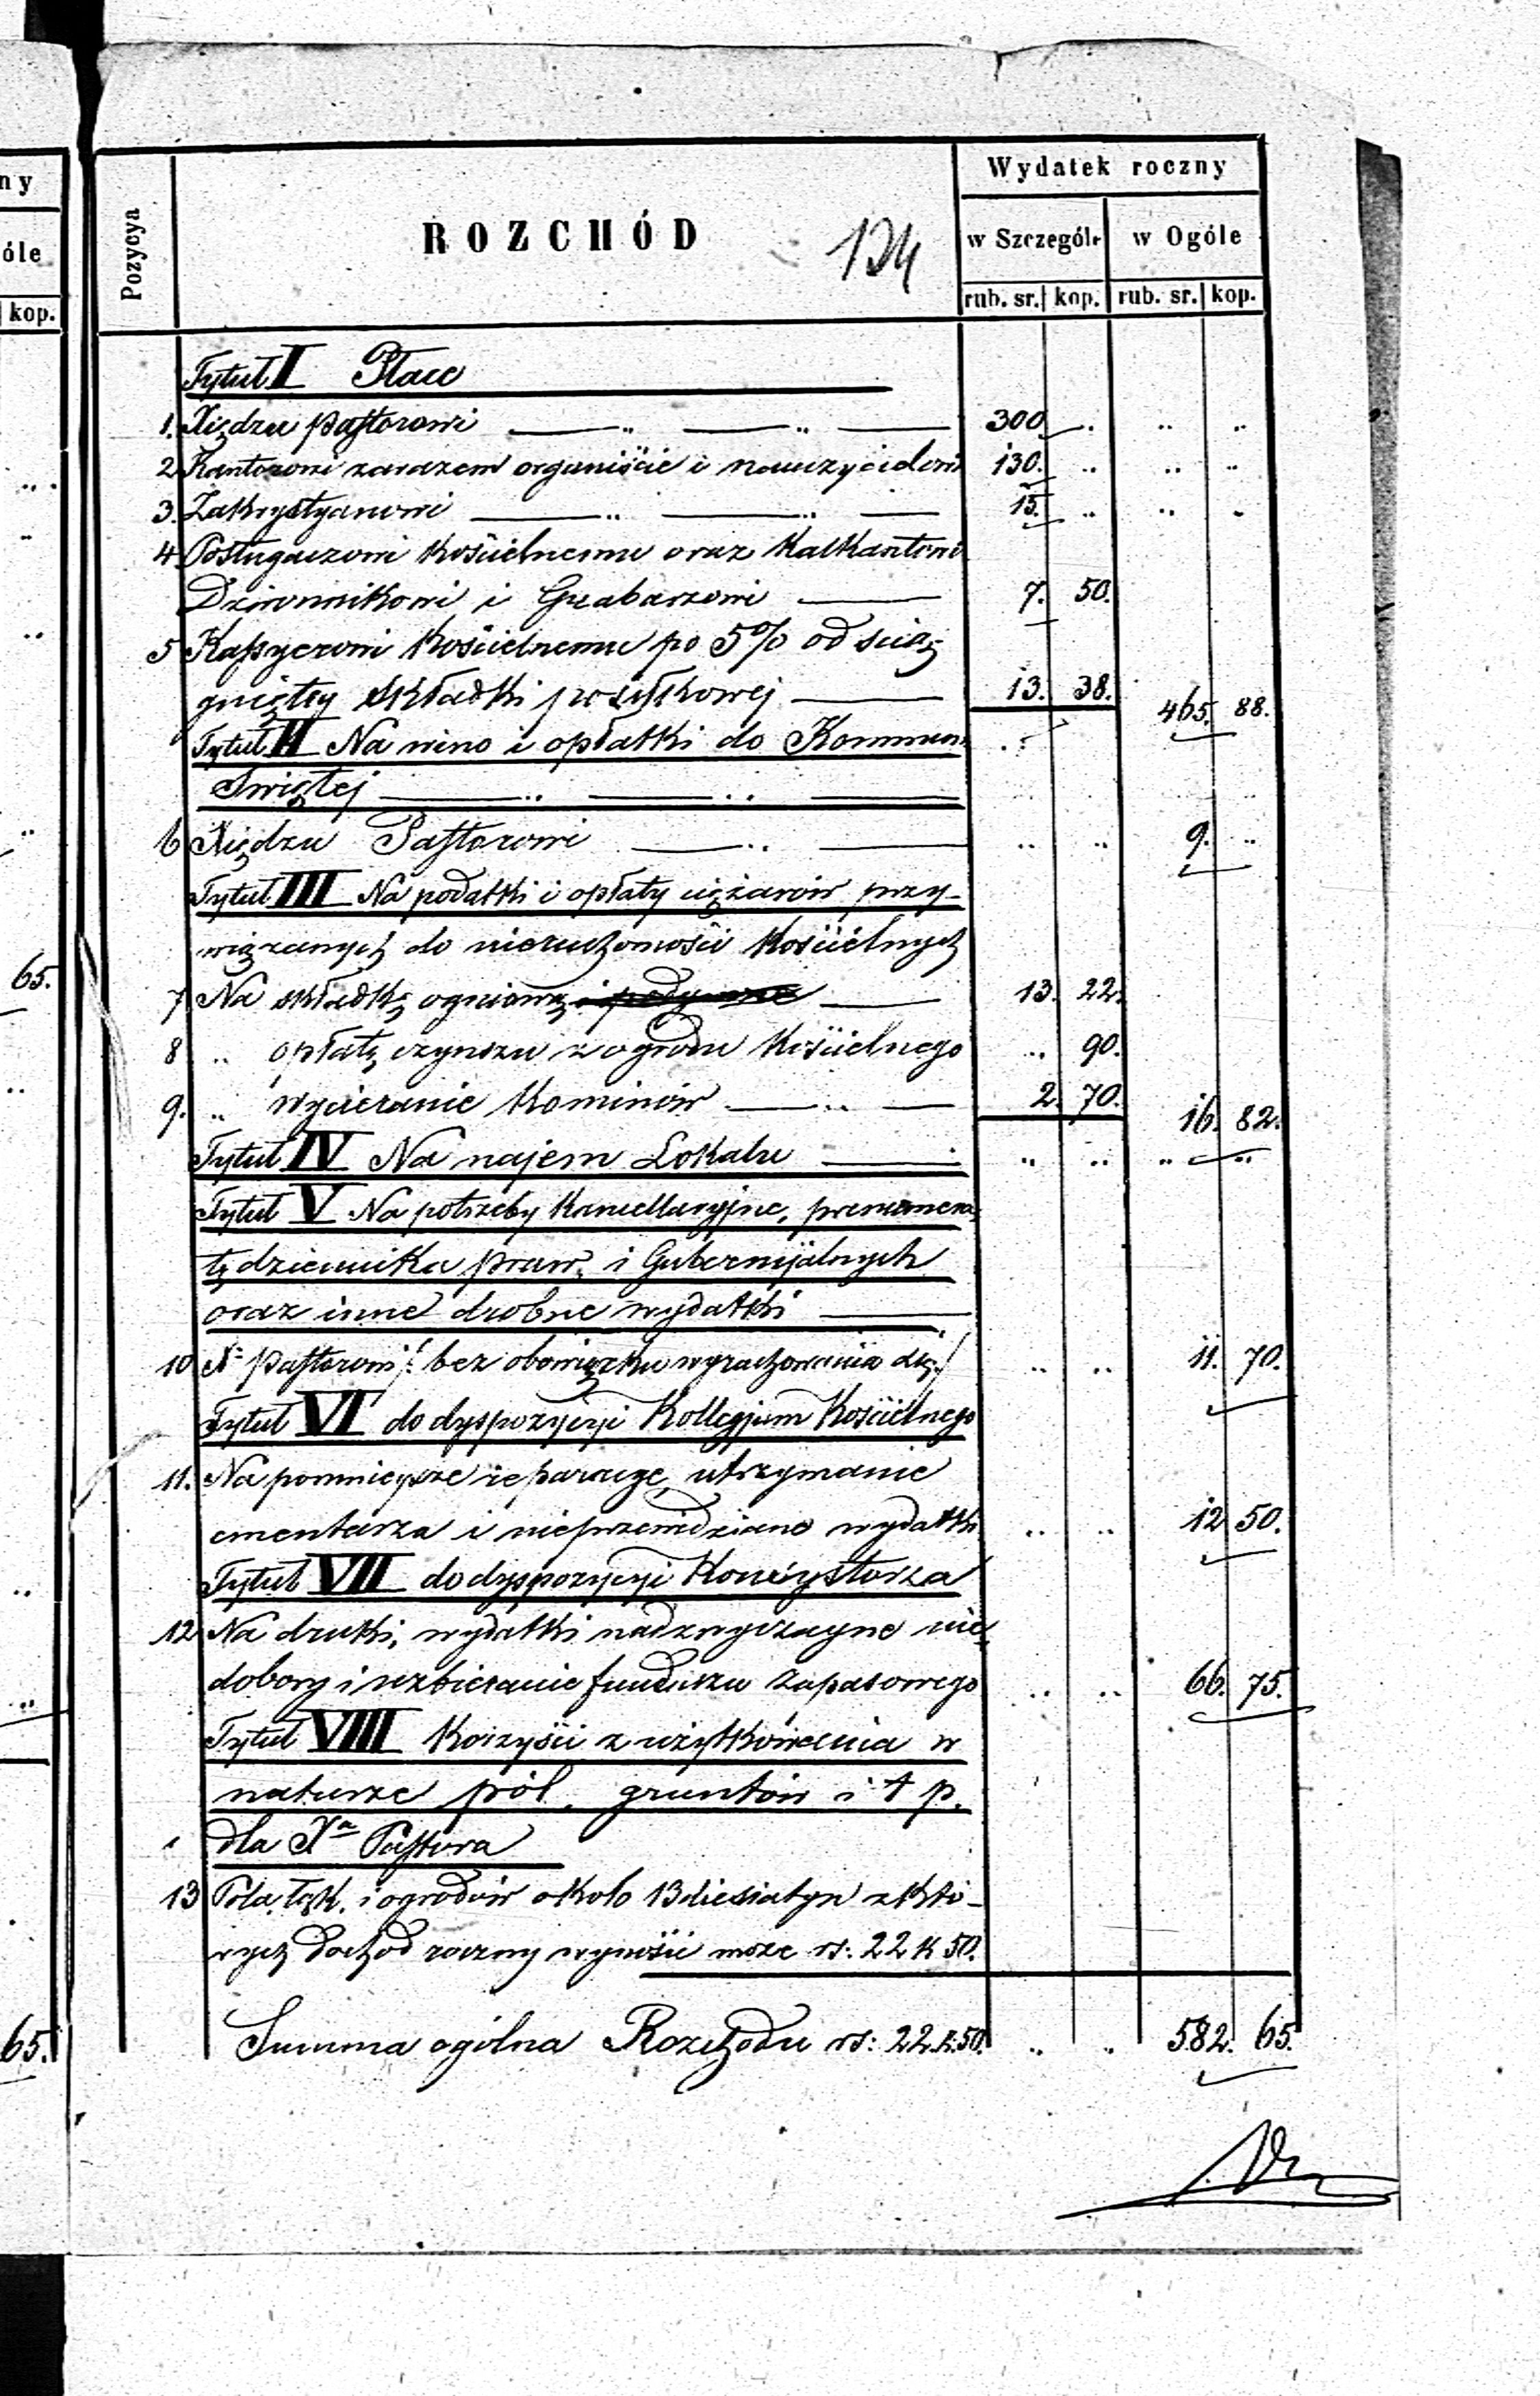 ny
óle
kop.
65.
65.
Pozycya
ROZCHÓD
134
Wydatek roczny
w Szczególe
w Ogóle
rub. sr. kop. rub. sr. kop.
Tytuł I Płace
1. Xiędzu Pastorowi 300 " " "
2 Kantorowi zarazem organiście i nauczycielowi 130. " " "
3. Zakrystyanowi 15. " " "
4 Posługaczowi Kościelnemu oraz Kalkantowi
Dzwonnikowi i Grabarzowi 7. 50.
5 Kassyerowi Kościelnemu po 5% od ścią-
gniętey składki posiłkowej 13. 38. 465. 88.
Tytuł II Na wino i opłatki do Kommun.
Świętej
6 Xiędzu Pastorowi " " 9. "
Tytuł III Na podatki i opłaty ciężarów przy-
wiązanych do nieruchomości Kościelnych
7 Na składkę ogniową i podymne 13. 22.
8 " opłatę czynszu z ogrodu Kościelnego " 90.
9. " wycieranie Kominów 2. 70. 16. 82.
Tytuł IV Na najem Lokalu " " " "
Tytuł V Na potrzeby Kancellaryjne, prenumera-
tę dziennika praw, i Gubernijalnych
oraz inne drobne wydatki
10 X. Pastorowi /: bez obowiązku wyrachowania się :/ " " 11. 70.
Tytuł VI do dyspozycyi Kollegjum Kościelnego
11. Na pomnieysze reparacye, utrzymanie
cmentarza i nieprzewidziane wydatki " " 12 50.
Tytuł VII do dyspozycyi Konsystorza
12 Na druki, wydatki nadzwyczayne nie-
dobory i uzbieranie funduszu zapasowego " " 66. 75.
Tytuł VIII Korzyści z użytkowania w
naturze pól, gruntów i t p.
dla Xa Pastora
13 Pola, łąk, i ogrodów około 13 diesiatyn z któ-
rych dochód roczny wynosić może rs: 22 k 50.
Summa ogólna Rozchodu rs: 22 k. 50. " " 582. 65.